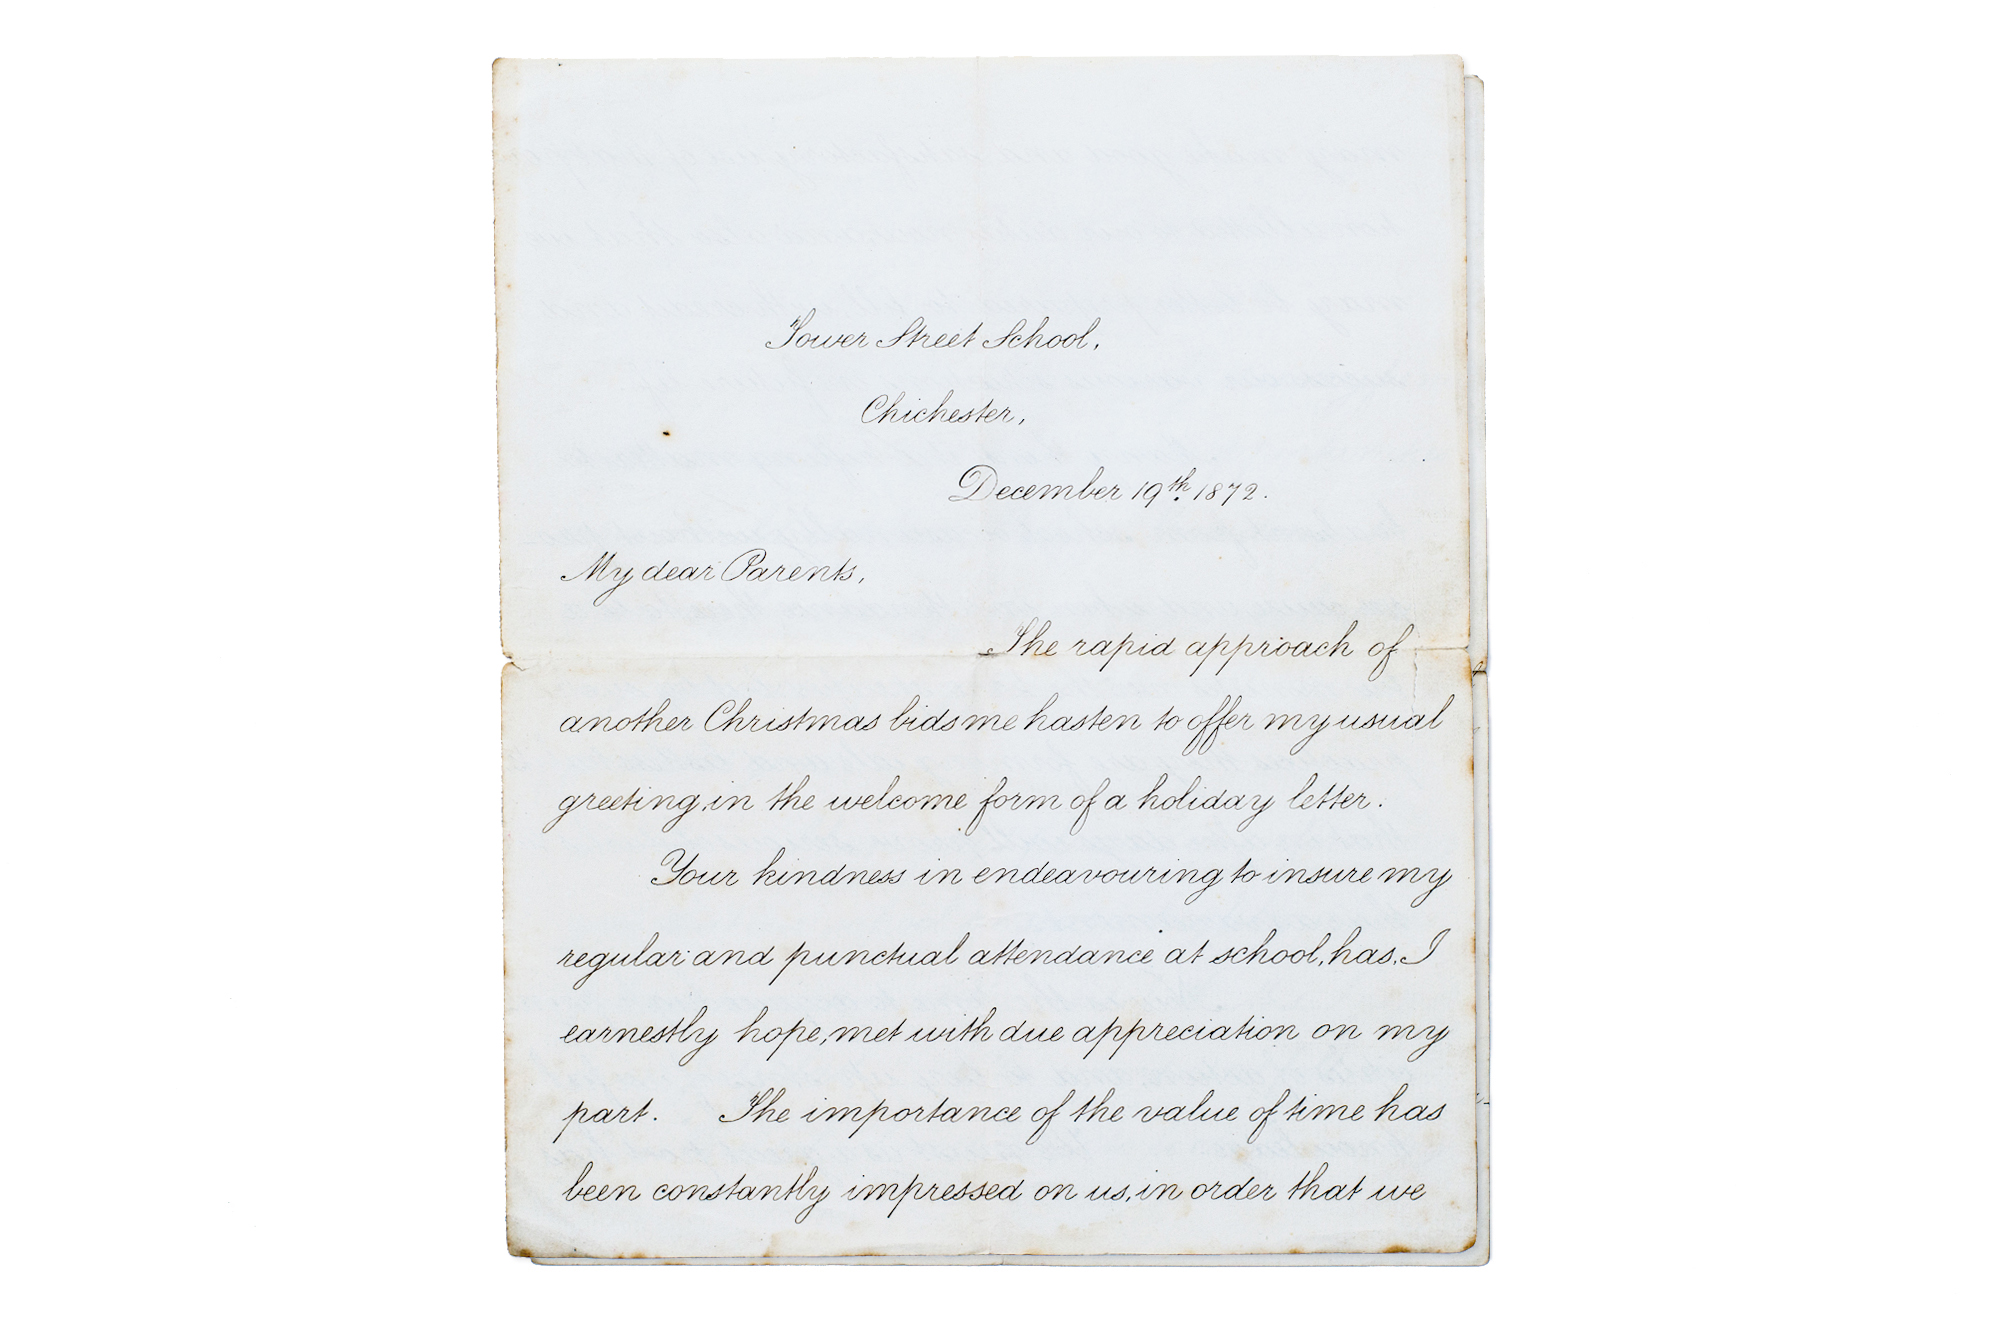 Tower Street School,
Chichester,
December 19th. 1872.
My dear Parents,
The rapid approach of
another Christmas bids me hasten to offer my usual
greeting, in the welcome form of a holiday letter.
Your kindness in endeavouring to insure my
regular and punctual attendance at school, has, I
earnestly hope, met with due appreciation on my
part. The importance of the value of time has
been constantly impressed on us, in order that we